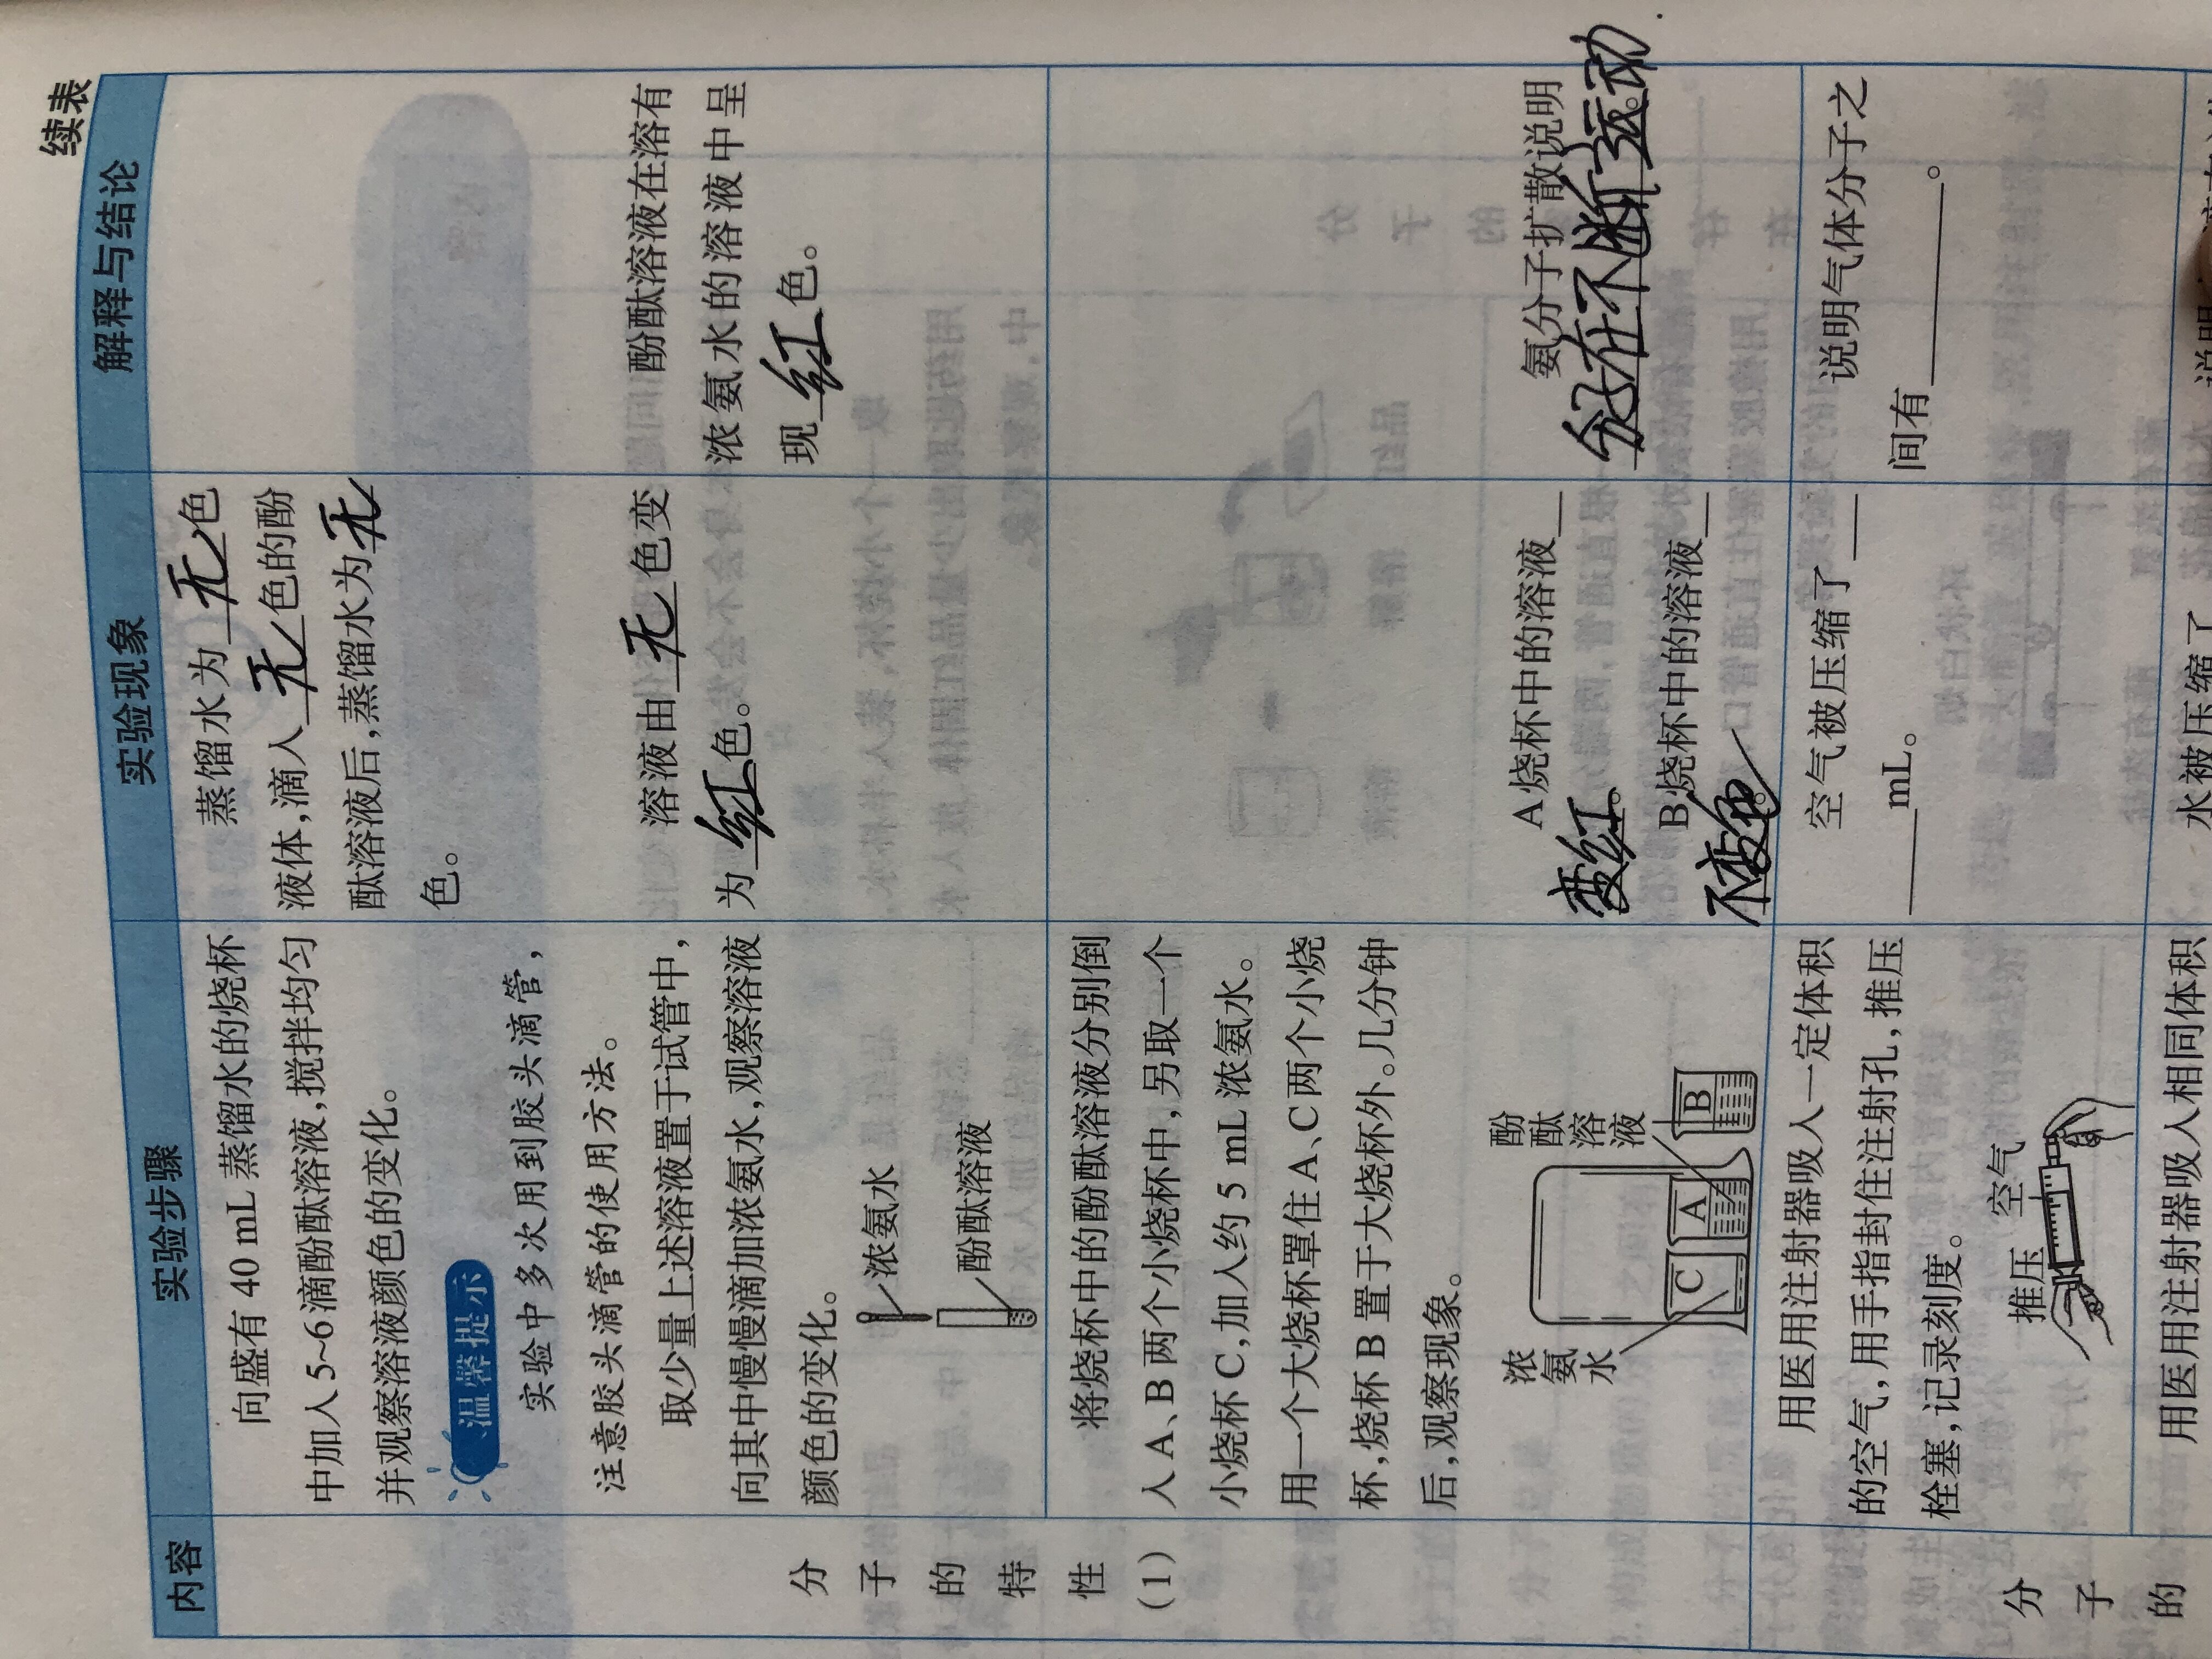 续表
内容
实验步骤
实验现象
解释与结论
分
子
的
特
性
(1)
向盛有 40 mL 蒸馏水的烧杯
中加入 5~6 滴酚酞溶液,搅拌均匀
并观察溶液颜色的变化。
温馨提示
实验中多次用到胶头滴管,
注意胶头滴管的使用方法。
蒸馏水为 无 色
液体,滴入 无 色的酚
酞溶液后,蒸馏水为 无
色。
取少量上述溶液置于试管中,
向其中慢慢滴加浓氨水,观察溶液
颜色的变化。
浓氨水
酚酞溶液
溶液由 无 色变
为 红 色。
酚酞溶液在溶有
浓氨水的溶液中呈
现 红 色。
将烧杯中的酚酞溶液分别倒
入 A、B 两个小烧杯中,另取一个
小烧杯 C,加入约 5 mL 浓氨水。
用一个大烧杯罩住 A、C 两个小烧
杯,烧杯 B 置于大烧杯外。几分钟
后,观察现象。
浓
氨
水
酚
酞
溶
液
C
A
B
A 烧杯中的溶液
变红。
B 烧杯中的溶液
不变色。
氨分子扩散说明
分子在不断运动。
分
子
的
用医用注射器吸入一定体积
的空气,用手指封住注射孔,推压
栓塞,记录刻度。
推压
空气
空气被压缩了
mL。
说明气体分子之
间有 。
用医用注射器吸入相同体积
水被压缩了